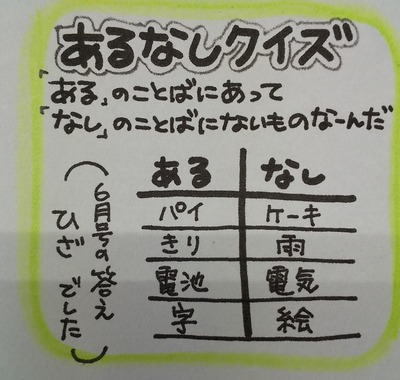 あるなしクイズ
「ある」のことばにあって
「なし」のことばにないものなーんだ
ある なし
パイ ケーキ
きり 雨
電池 電気
字 絵
(6月号の答え
ひざ でした)